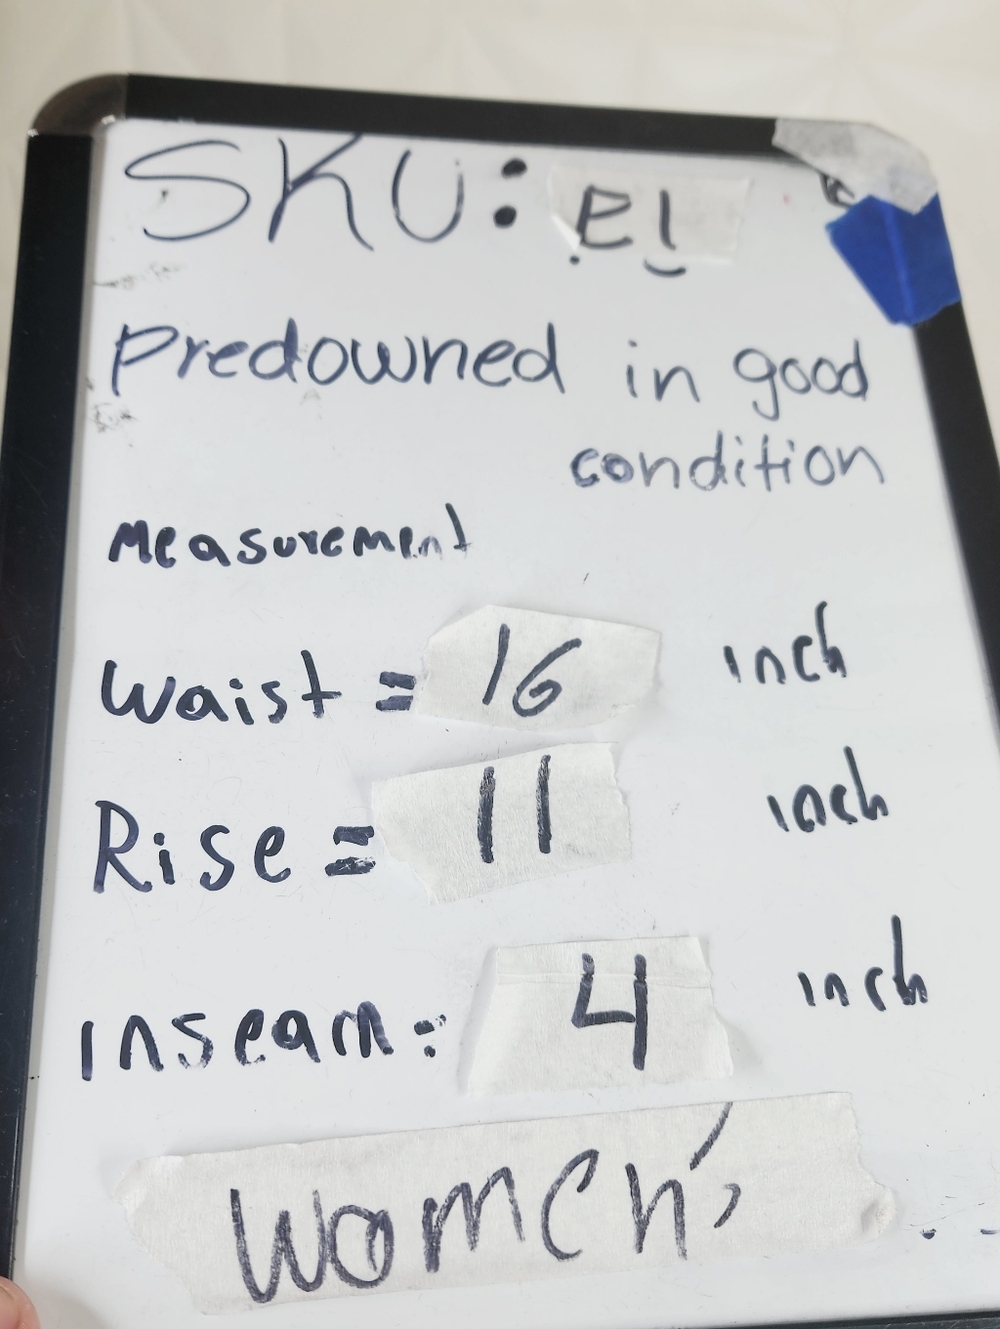 SKU: E1
Predowned in good
condition
Measurement
Waist = 16 inch
Rise = 11 inch
Inseam: 4 inch
Women's